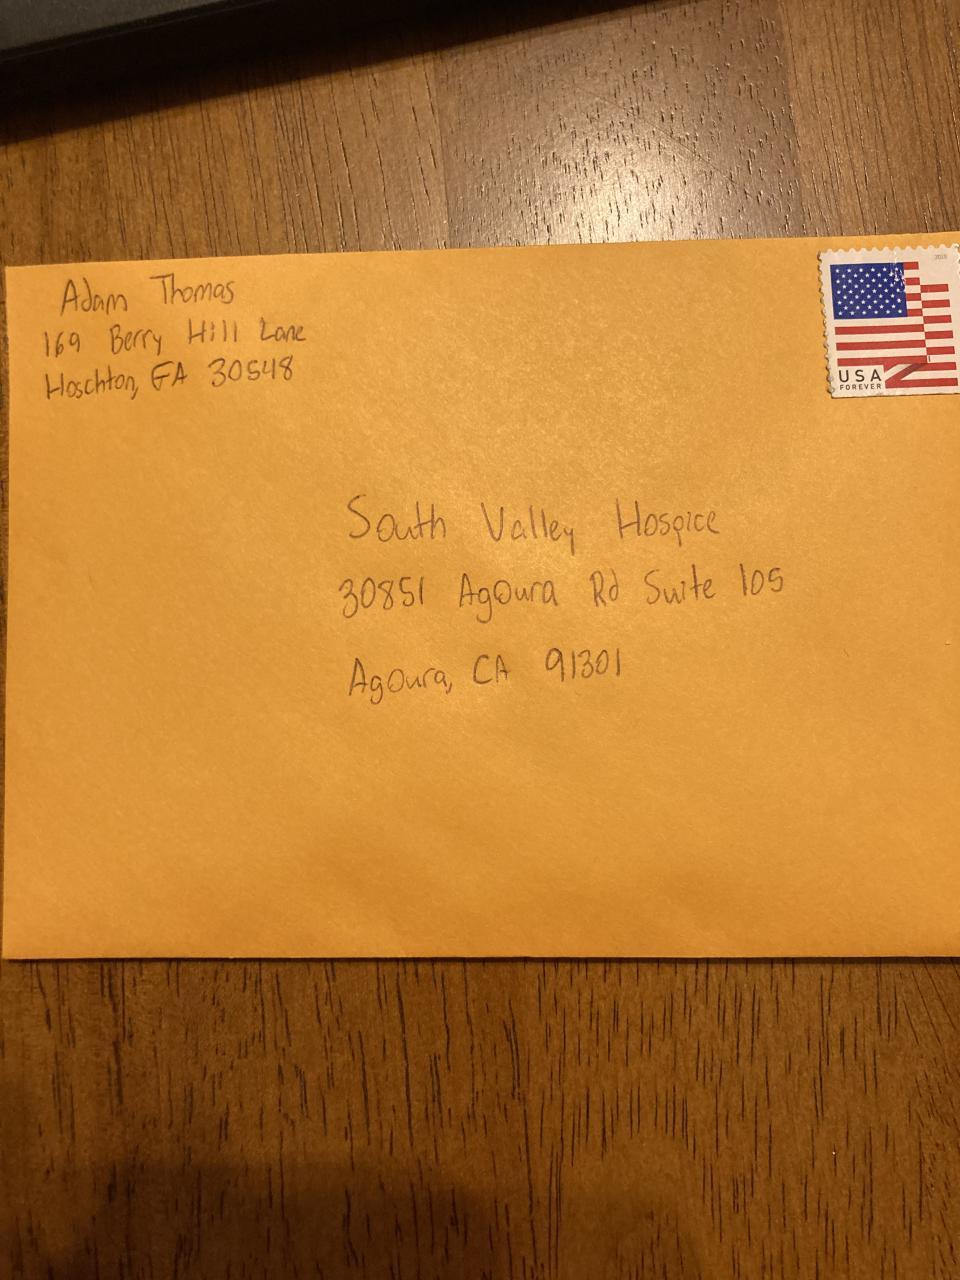 Adam Thomas
169 Berry Hill Lane
Hoschton, GA 30548
2018
USA
FOREVER
South Valley Hospice
30851 Agoura Rd Suite 105
Agoura, CA 91301